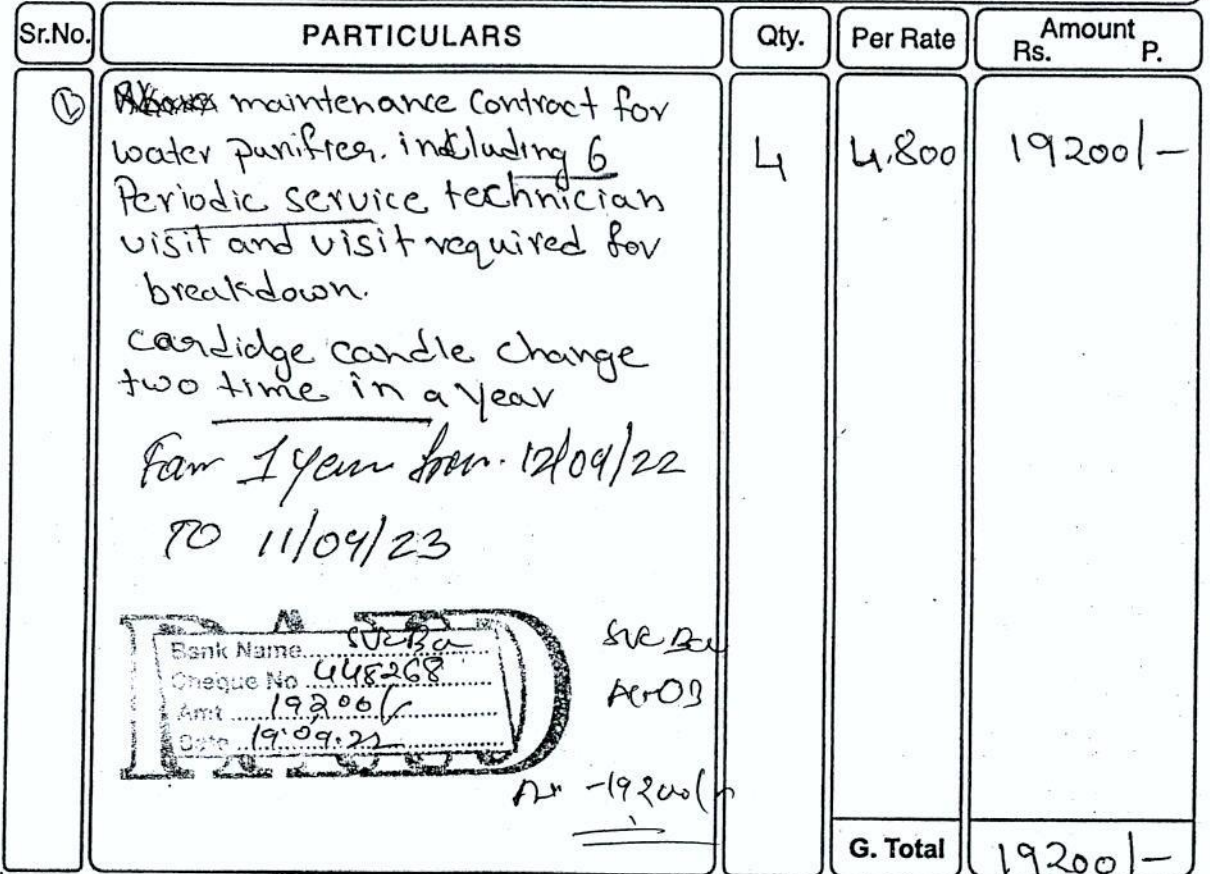 Sr.No. PARTICULARS Qty. Per Rate Amount
Rs. P.
① maintenance Contract for
water purifier. including 6 4 4.800 19200/-
Periodic service technician
visit and visit required for
breakdown.
cardidge candle change
two time in a year
For 1 year from. 12/09/22
TO 11/09/23
PAID
Bank Name
Cheque No 448268
Amt 19200/-
Date 19.09.22
-19200/-
G. Total 19200/-